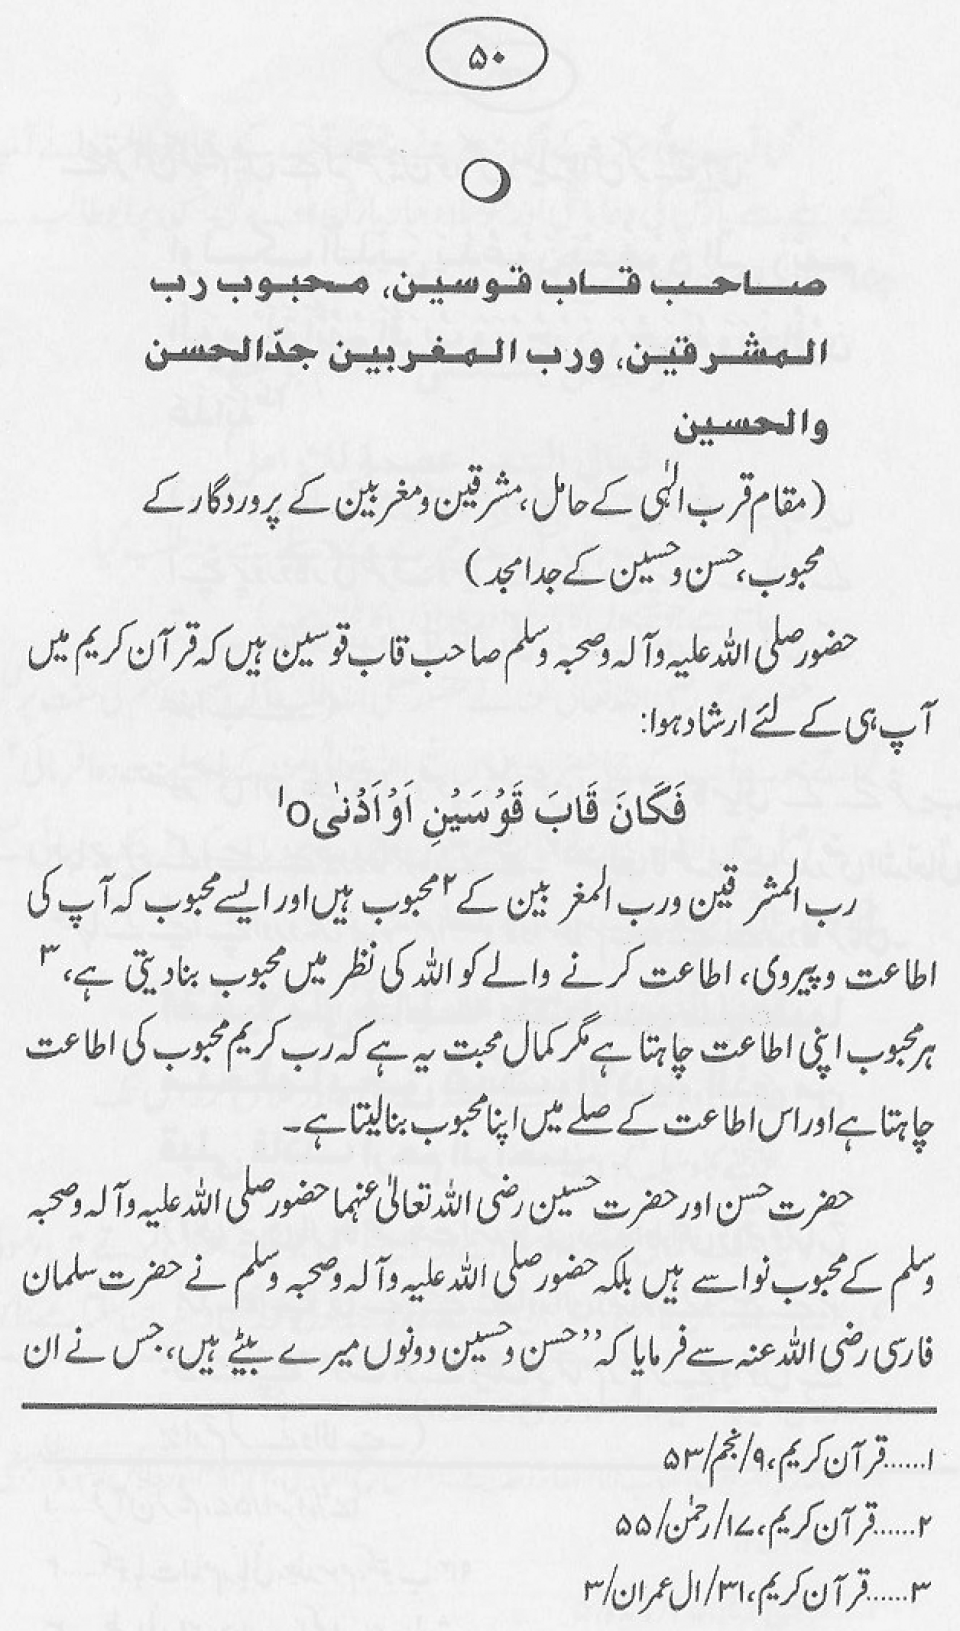 ۵۰
صاحب قاب قوسین، محبوب رب
المشرقین، ورب المغربین جدّالحسن
والحسین
(مقام قرب الٰہی کے حامل، مشرقین ومغربین کے پروردگار کے
محبوب، حسن وحسین کے جدامجد)
حضور صلی اللہ علیہ وآلہ وصحبہ وسلم صاحب قاب قوسین ہیں کہ قرآن کریم میں
آپ ہی کے لئے ارشاد ہوا:
فَکَانَ قَابَ قَوْسَیْنِ اَوْ اَدْنٰی O ۱
رب المشرقین ورب المغربین کے ۲ محبوب ہیں اور ایسے محبوب کہ آپ کی
اطاعت وپیروی، اطاعت کرنے والے کو اللہ کی نظر میں محبوب بنادیتی ہے، ۳
ہر محبوب اپنی اطاعت چاہتا ہے مگر کمال محبت یہ ہے کہ رب کریم محبوب کی اطاعت
چاہتا ہے اور اس اطاعت کے صلے میں اپنا محبوب بنالیتا ہے۔
حضرت حسن اور حضرت حسین رضی اللہ تعالیٰ عنہما حضور صلی اللہ علیہ وآلہ وصحبہ
وسلم کے محبوب نواسے ہیں بلکہ حضور صلی اللہ علیہ وآلہ وصحبہ وسلم نے حضرت سلمان
فارسی رضی اللہ عنہ سے فرمایا کہ ’’حسن وحسین دونوں میرے بیٹے ہیں، جس نے ان
۱......قرآن کریم، ۹/نجم/۵۳
۲......قرآن کریم، ۱۷/رحمٰن/۵۵
۳......قرآن کریم، ۳۱/ال عمران/۳